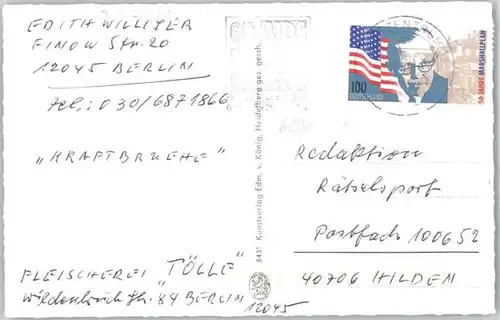 EDITH WILLIGER
FINOW Str. 20
12045 BERLIN
tel.: 030/6871866
"KRAFTBRUEHE"
FLEISCHEREI "TÖLLE"
Wildenbruch Str. 84 BERLIN
12045
8431 Kunstverlag Edm. v. König, Heidelberg ges. gesch.
100
DEUTSCHLAND
50 JAHRE MARSHALLPLAN
Redaktion
Rätselsport
Postfach 100652
40706 HILDEN